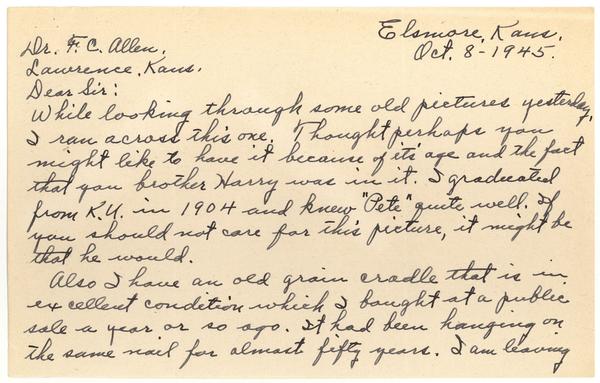 Elsmore, Kans.
Oct. 8-1945.
Dr. F. C. Allen,
Lawrence, Kans.
Dear Sir:
While looking through some old pictures yesterday,
I ran across this one. Thought perhaps you
might like to have it because of it's age and the fact
that you brother Harry was in it. I graduated
from K.U. in 1904 and knew "Pete" quite well. If
you should not care for this picture, it might be
that he would.
Also I have an old grain cradle that is in
excellent condetion which I bought at a public
sale a year or so ago. It had been hanging on
the same nail for almost fifty years. I am leaving